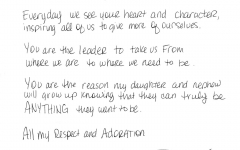 Everyday we see your heart and character,
inspiring all of us to give more of ourselves.
You are the leader to take us from
where we are to where we need to be.
You are the reason my daughter and nephew
will grow up knowing that they can truly be
ANYTHING they want to be.
All my Respect and Adoration